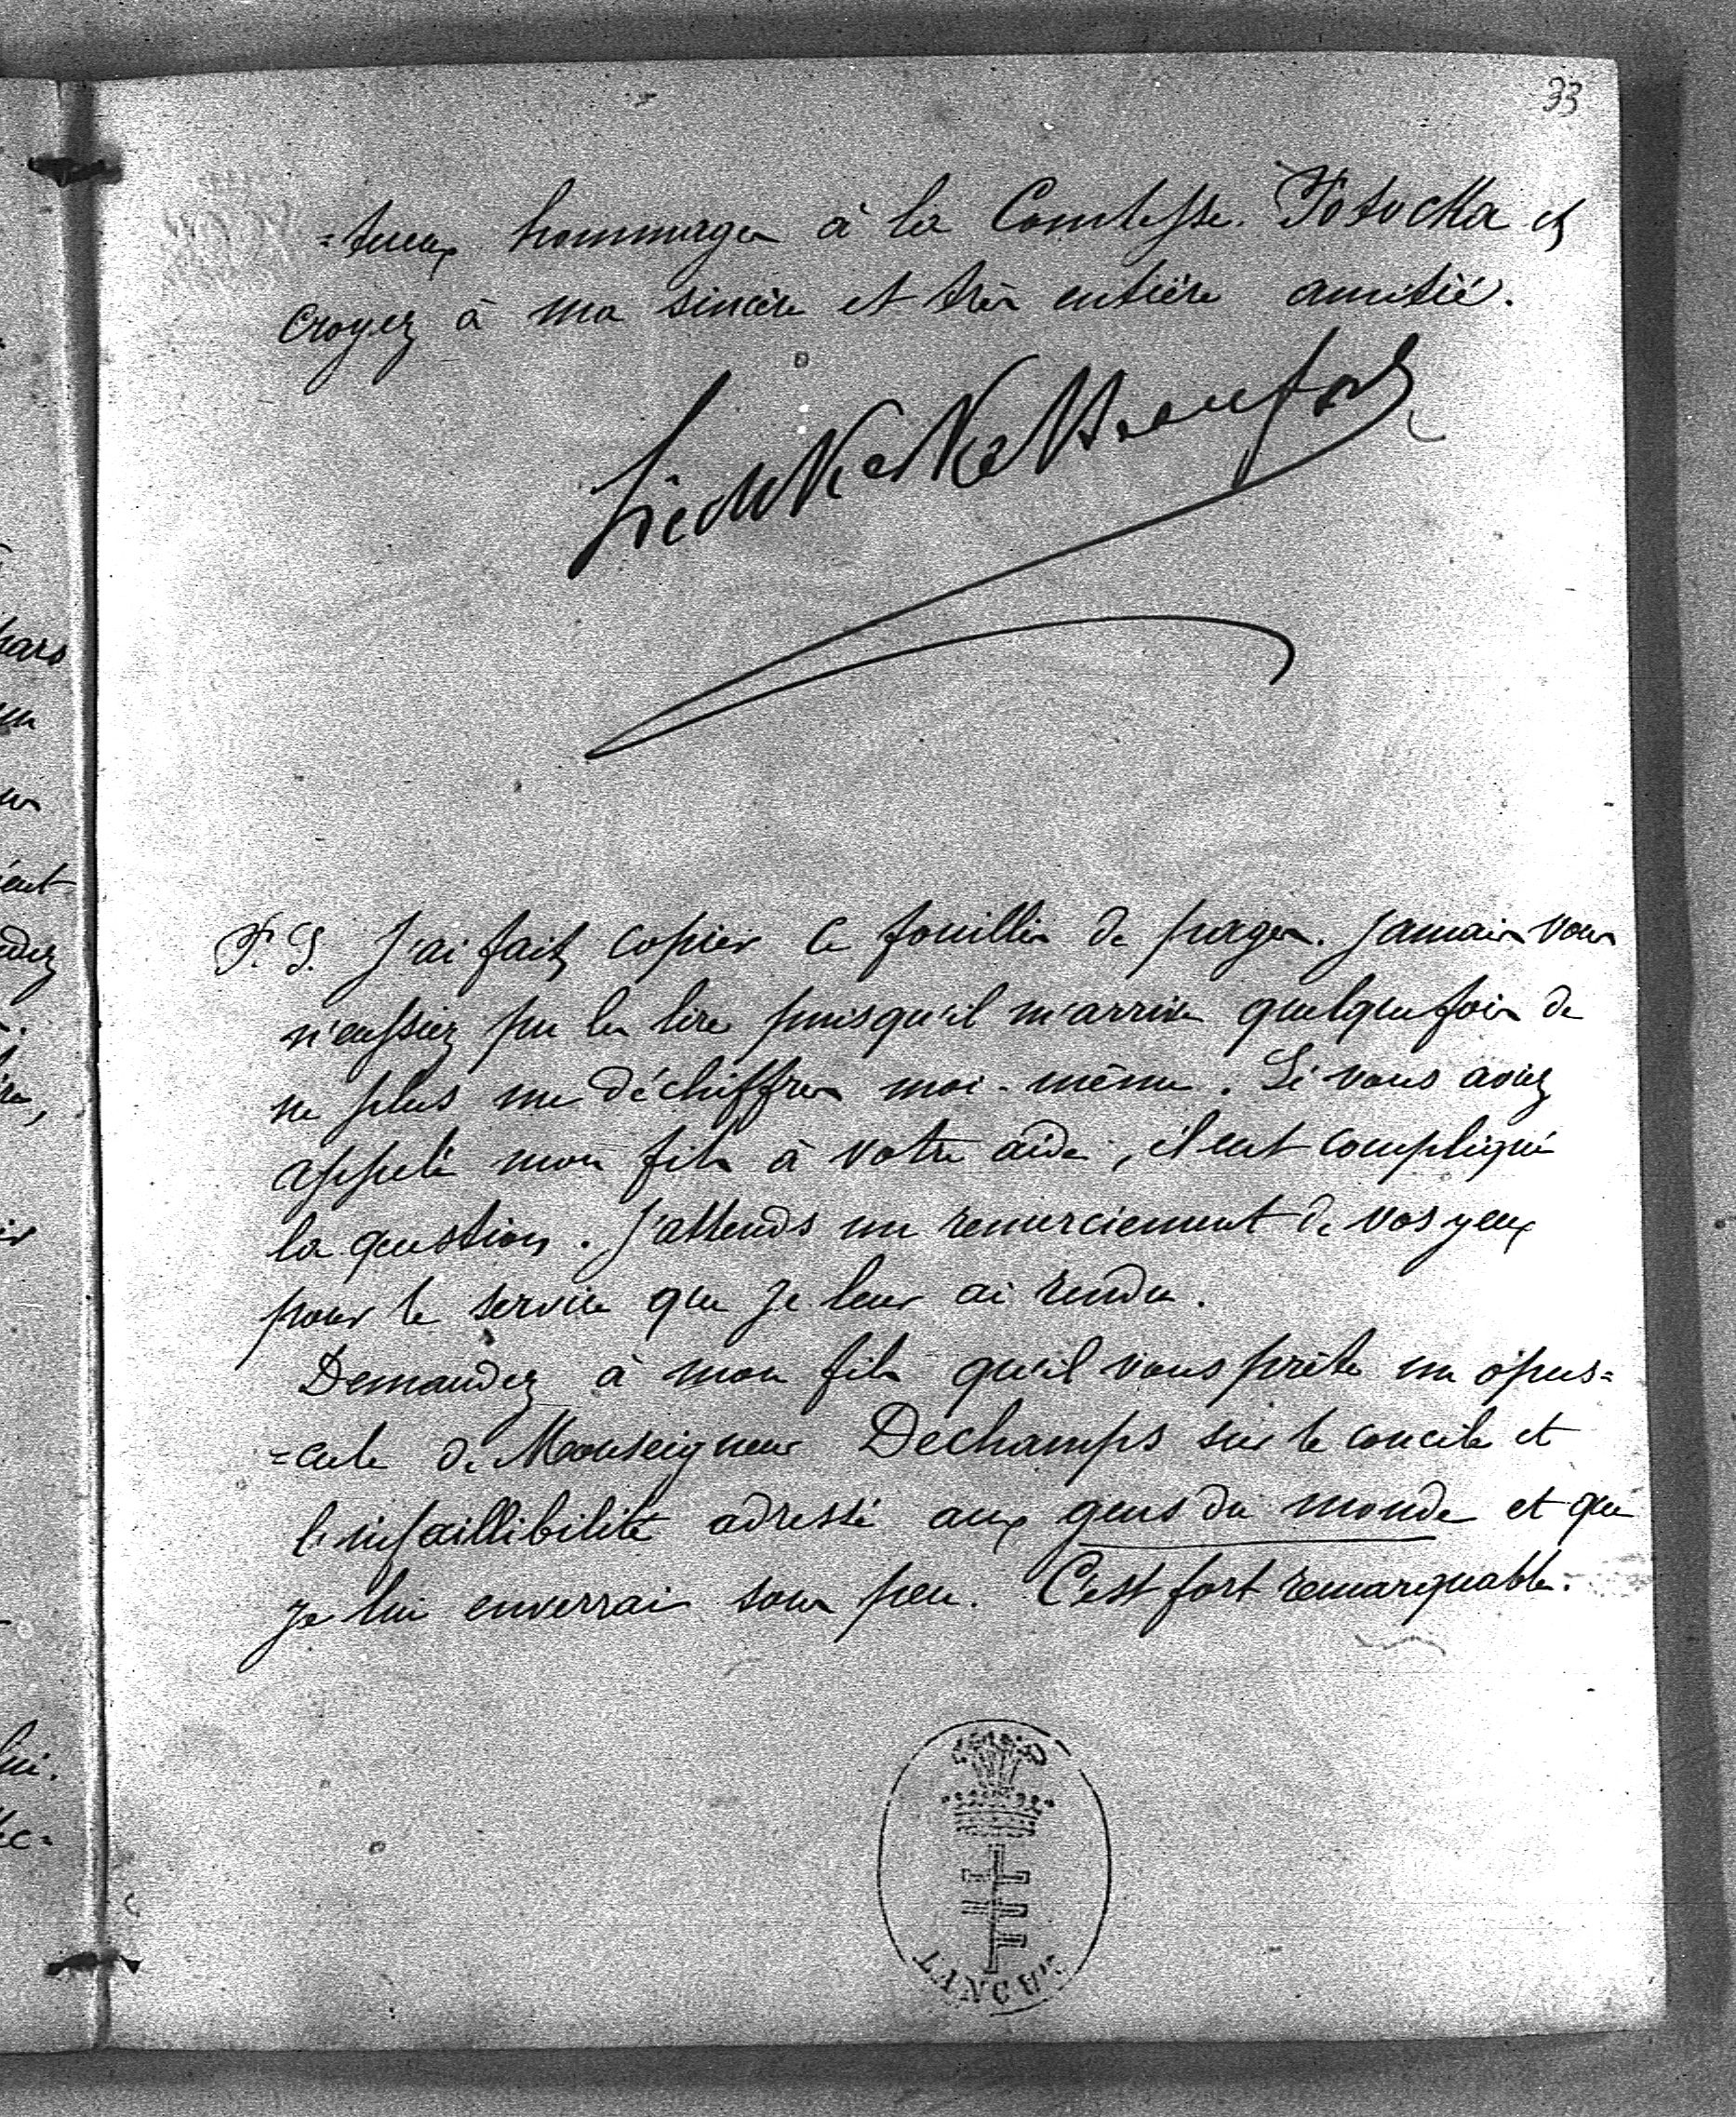 33
=tueux hommages à la Comtesse Potocka et
croyez à ma sincère et très entière amitié.
P.S. J'ai fait copier ce fouillis de pages. Jamais vous
n'eussiez pu les lire puisqu'il m'arrive quelquefois de
ne plus me déchiffrer moi-même. Si vous aviez
appelé mon fils à votre aide, il eut compliqué
la question. J'attends un remerciement de vos yeux
pour le service que je leur ai rendu.
Demandez à mon fils qu'il vous prête un opus=
=cule de Monseigneur Dechamps sur le concile et
l'infaillibilité adressé aux gens du monde et que
je lui enverrai sous peu. C'est fort remarquable.
ŁAŃCUT